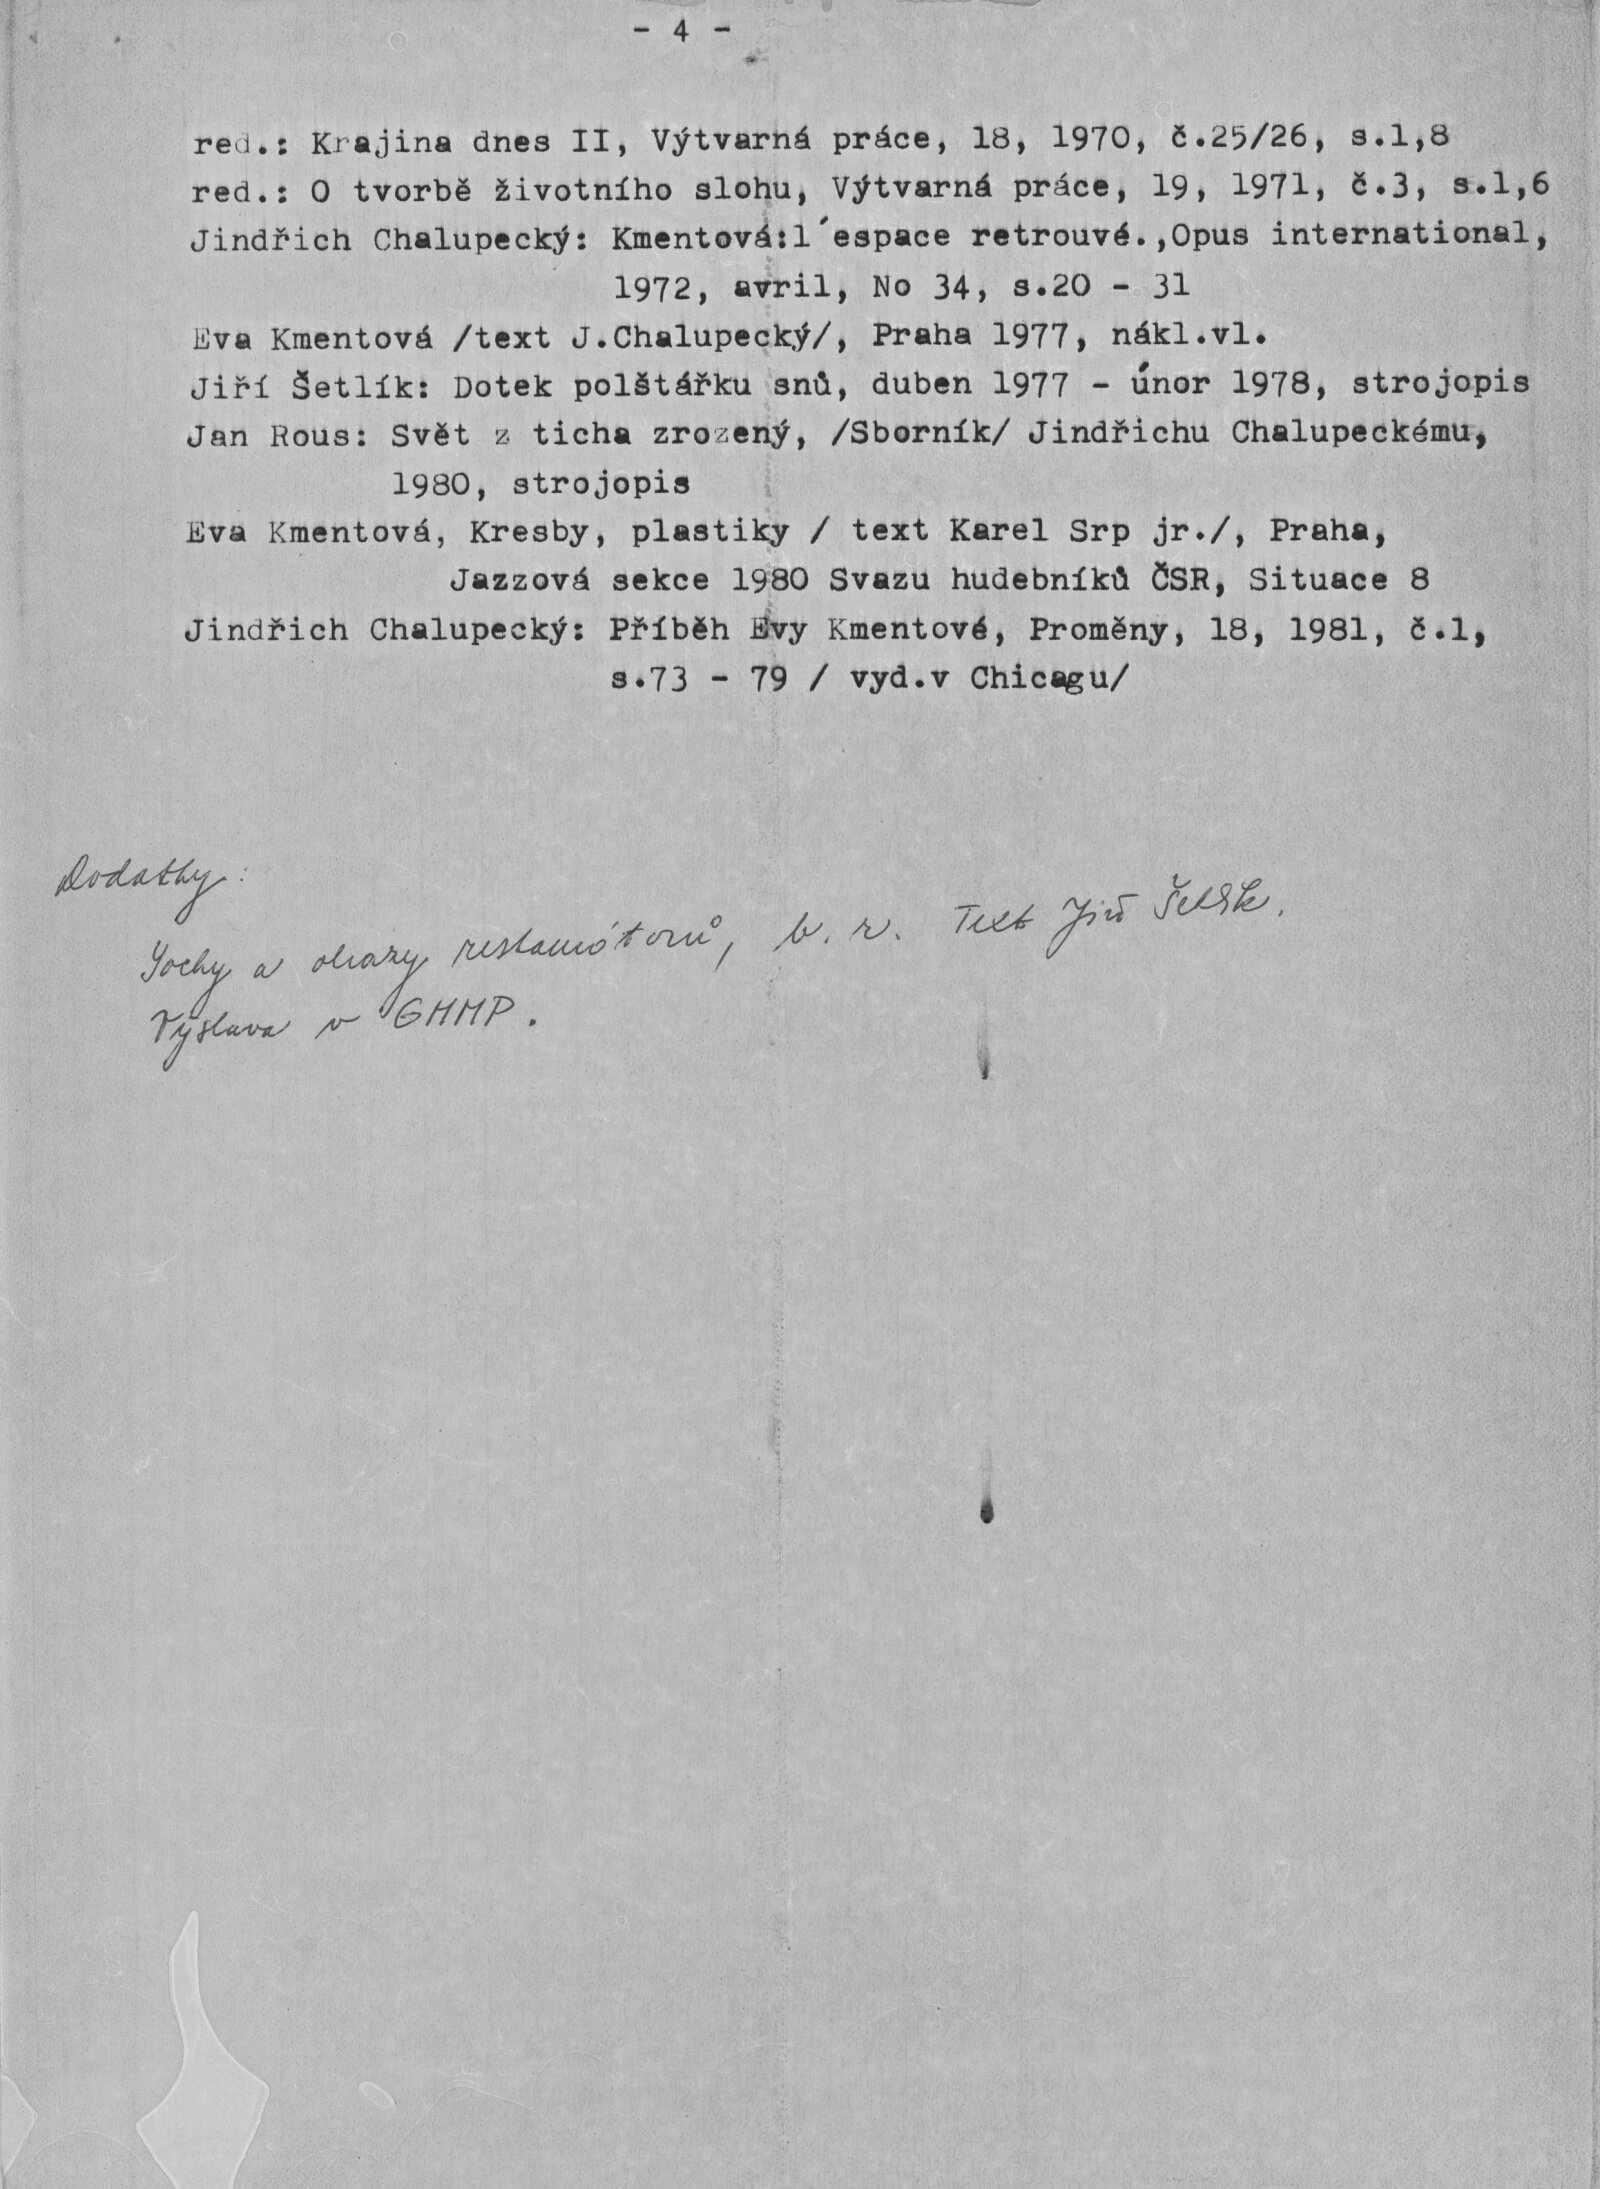 - 4 -
red.: Krajina dnes II, Výtvarná práce, 18, 1970, č.25/26, s.1,8
red.: O tvorbě životního slohu, Výtvarná práce, 19, 1971, č.3, s.1,6
Jindřich Chalupecký: Kmentová:l´espace retrouvé.,Opus international,
1972, avril, No 34, s.20 - 31
Eva Kmentová /text J.Chalupecký/, Praha 1977, nákl.vl.
Jiří Šetlík: Dotek polštářku snů, duben 1977 - únor 1978, strojopis
Jan Rous: Svět z ticha zrozený, /Sborník/ Jindřichu Chalupeckému,
1980, strojopis
Eva Kmentová, Kresby, plastiky / text Karel Srp jr./, Praha,
Jazzová sekce 1980 Svazu hudebníků ČSR, Situace 8
Jindřich Chalupecký: Příběh Evy Kmentové, Proměny, 18, 1981, č.1,
s.73 - 79 / vyd.v Chicagu/
Dodatky:
Sochy a obrazy restaurátorů, b. r. Text Jiří Šetlík.
Výstava v GHMP.